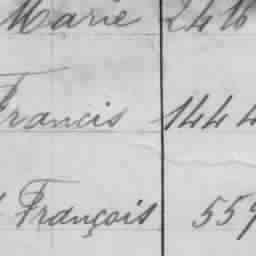 Marie 2416
Francis 144
François 559